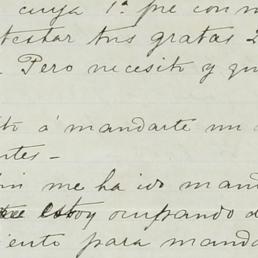 cuya 1ª pre con m
testar tus gratas 2
. Pero necesito y qu
ito á mandarte un
ntes-
in me ha ido mand
que estoy ocupando d
iento para manda